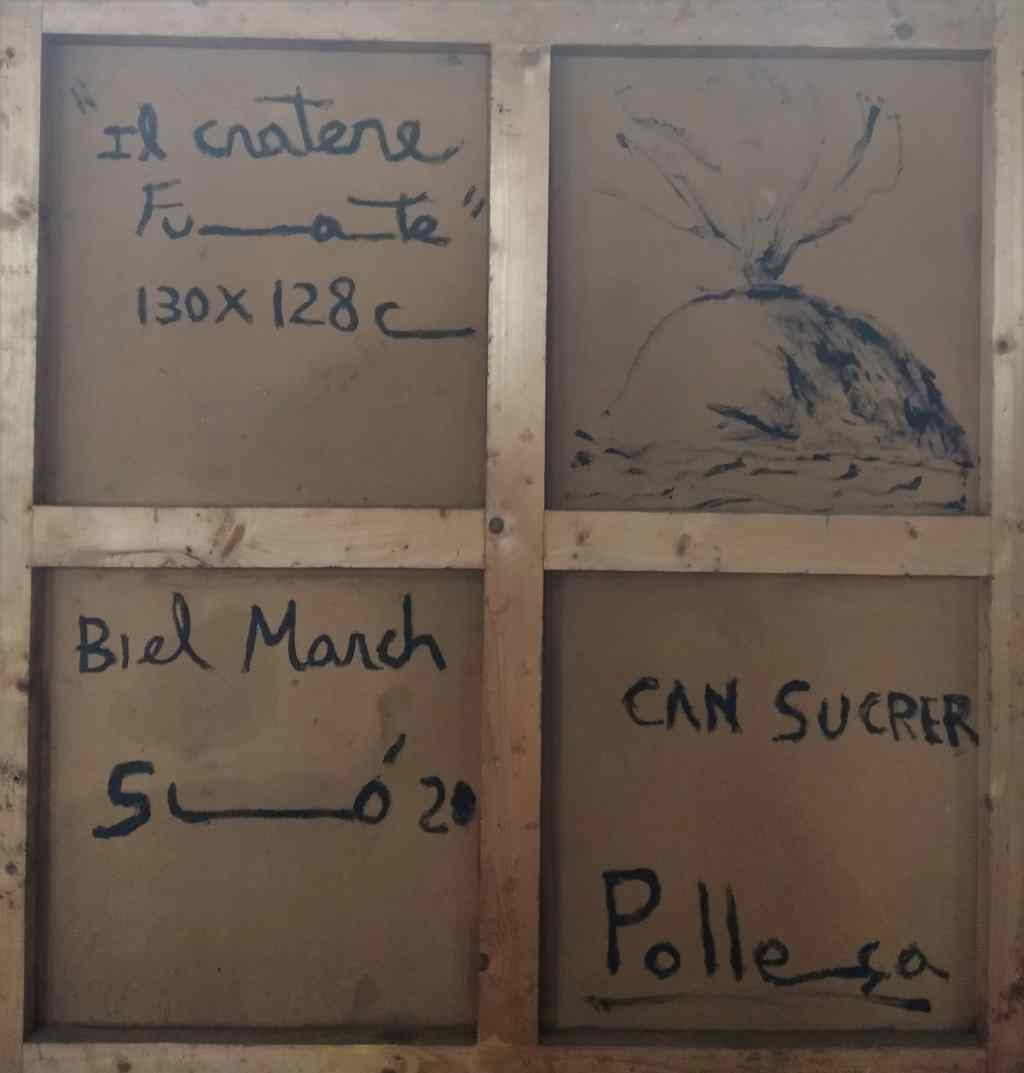 "Il cratere
Fumante"
130X128c
Biel March
Suó 20
CAN SUCRER
Pollença